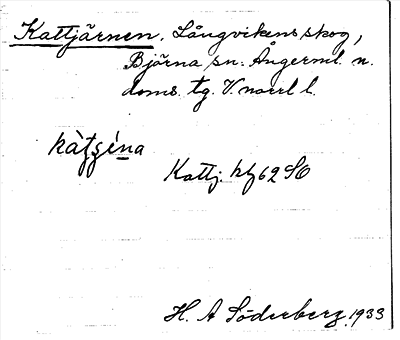 Kattjärnen. Långvikens skog,
Björna sn. Ångerml. n.
doms. tg. V. norrl l.
kàtʂéna
Kattj. kbl 62 SO
H. A Söderberg 1933